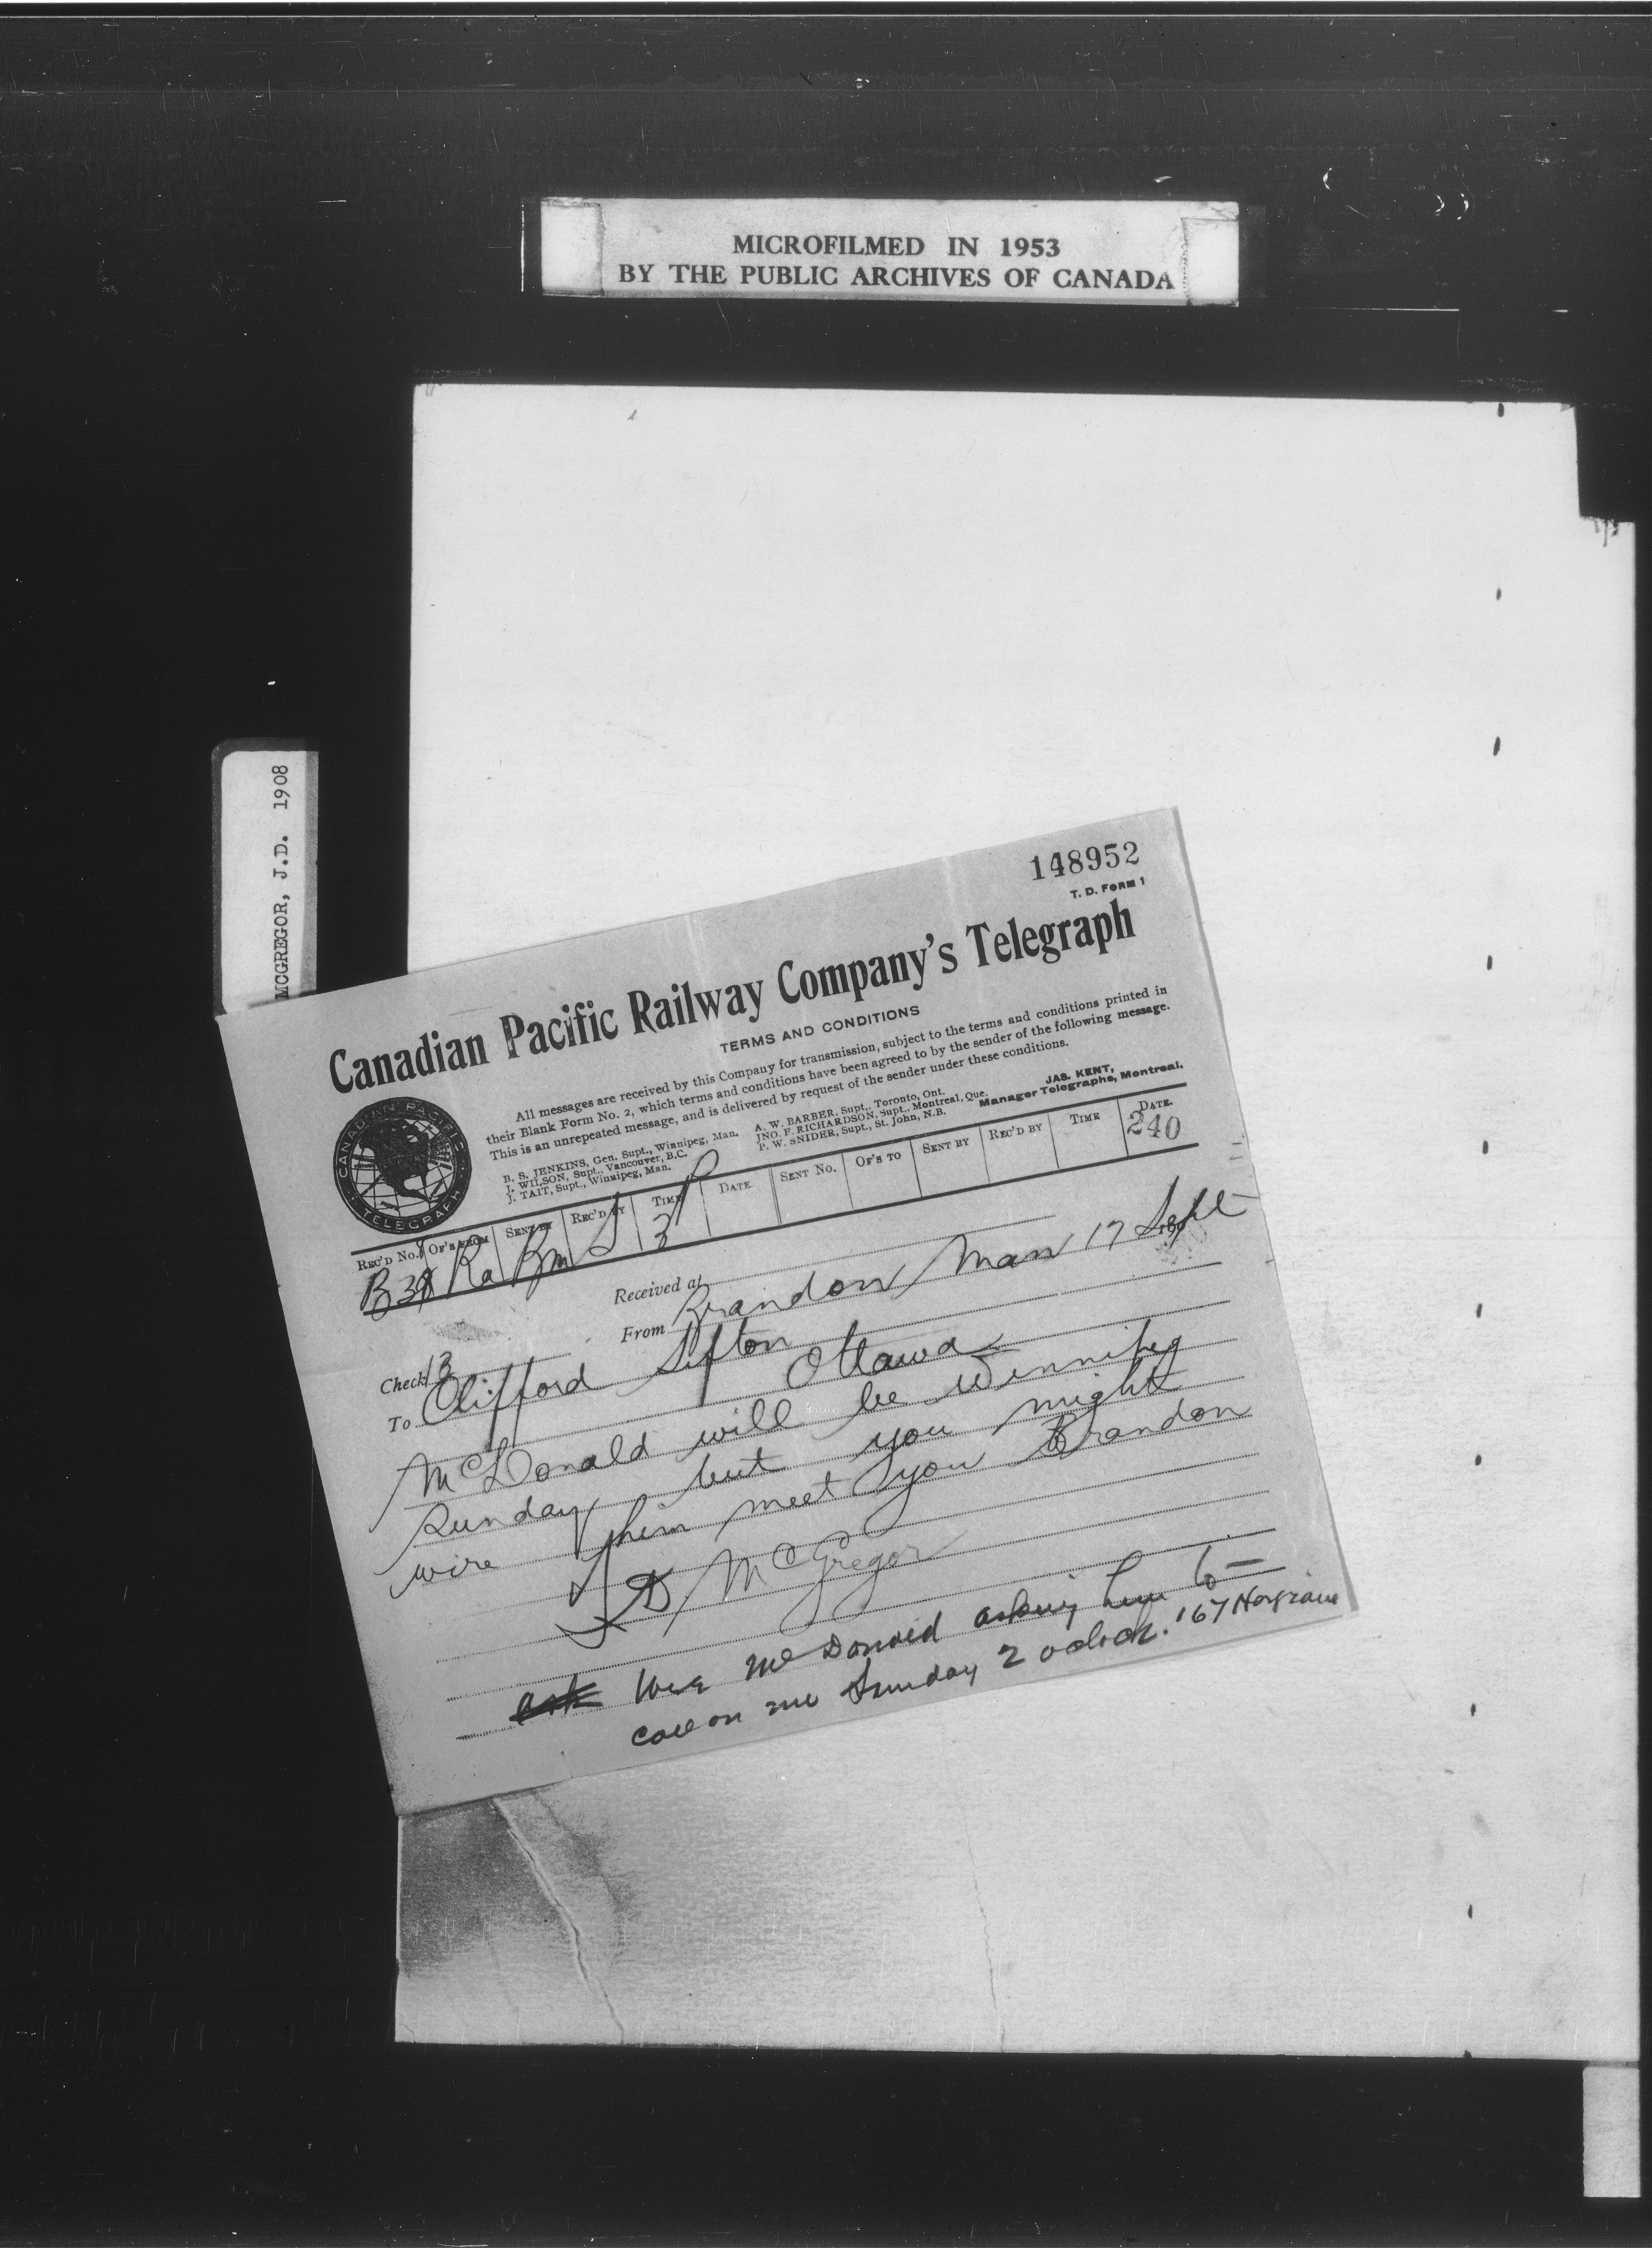 MICROFILMED IN 1953
BY THE PUBLIC ARCHIVES OF CANADA
MCGREGOR, J.D. 1908
148952
T. D. FORM 1
Canadian Pacific Railway Company's Telegraph
TERMS AND CONDITIONS
All messages are received by this Company for transmission, subject to the terms and conditions printed in
their Blank Form No. 2, which terms and conditions have been agreed to by the sender of the following message.
This is an unrepeated message, and is delivered by request of the sender under these conditions.
JAS. KENT,
Manager Telegraphs, Montreal.
B. S. JENKINS, Gen. Supt., Winnipeg, Man.
J. WILSON, Supt., Vancouver, B.C.
J. TAIT, Supt., Winnipeg, Man.
A. W. BARBER, Supt., Toronto, Ont.
JNO. F. RICHARDSON, Supt., Montreal, Que.
P. W. SNIDER, Supt., St. John, N.B.
CANADIAN PACIFIC TELEGRAPH
REC'D NO. OF'S FROM SENT BY REC'D BY TIME DATE SENT NO. OF'S TO SENT BY REC'D BY TIME DATE.
Ra Bm S 3 P 240
Received at
From Brandon Man 17 Sept
Check 13
To Clifford Sifton
Ottawa
McDonald will be Winnipeg
Sunday but you might
wire him meet you Brandon
J D McGregor
ask Wire McDonald asking him to
call on me Sunday 2 oclock.